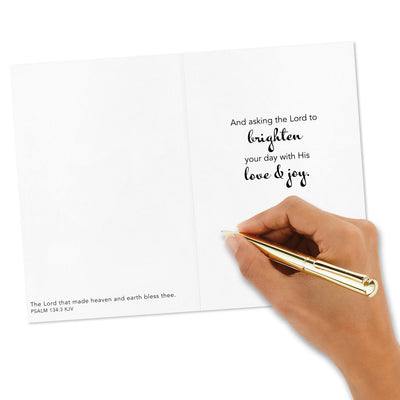 The Lord that made heaven and earth bless thee.
PSALM 134:3 KJV
And asking the Lord to
brighten
your day with His
love & joy.